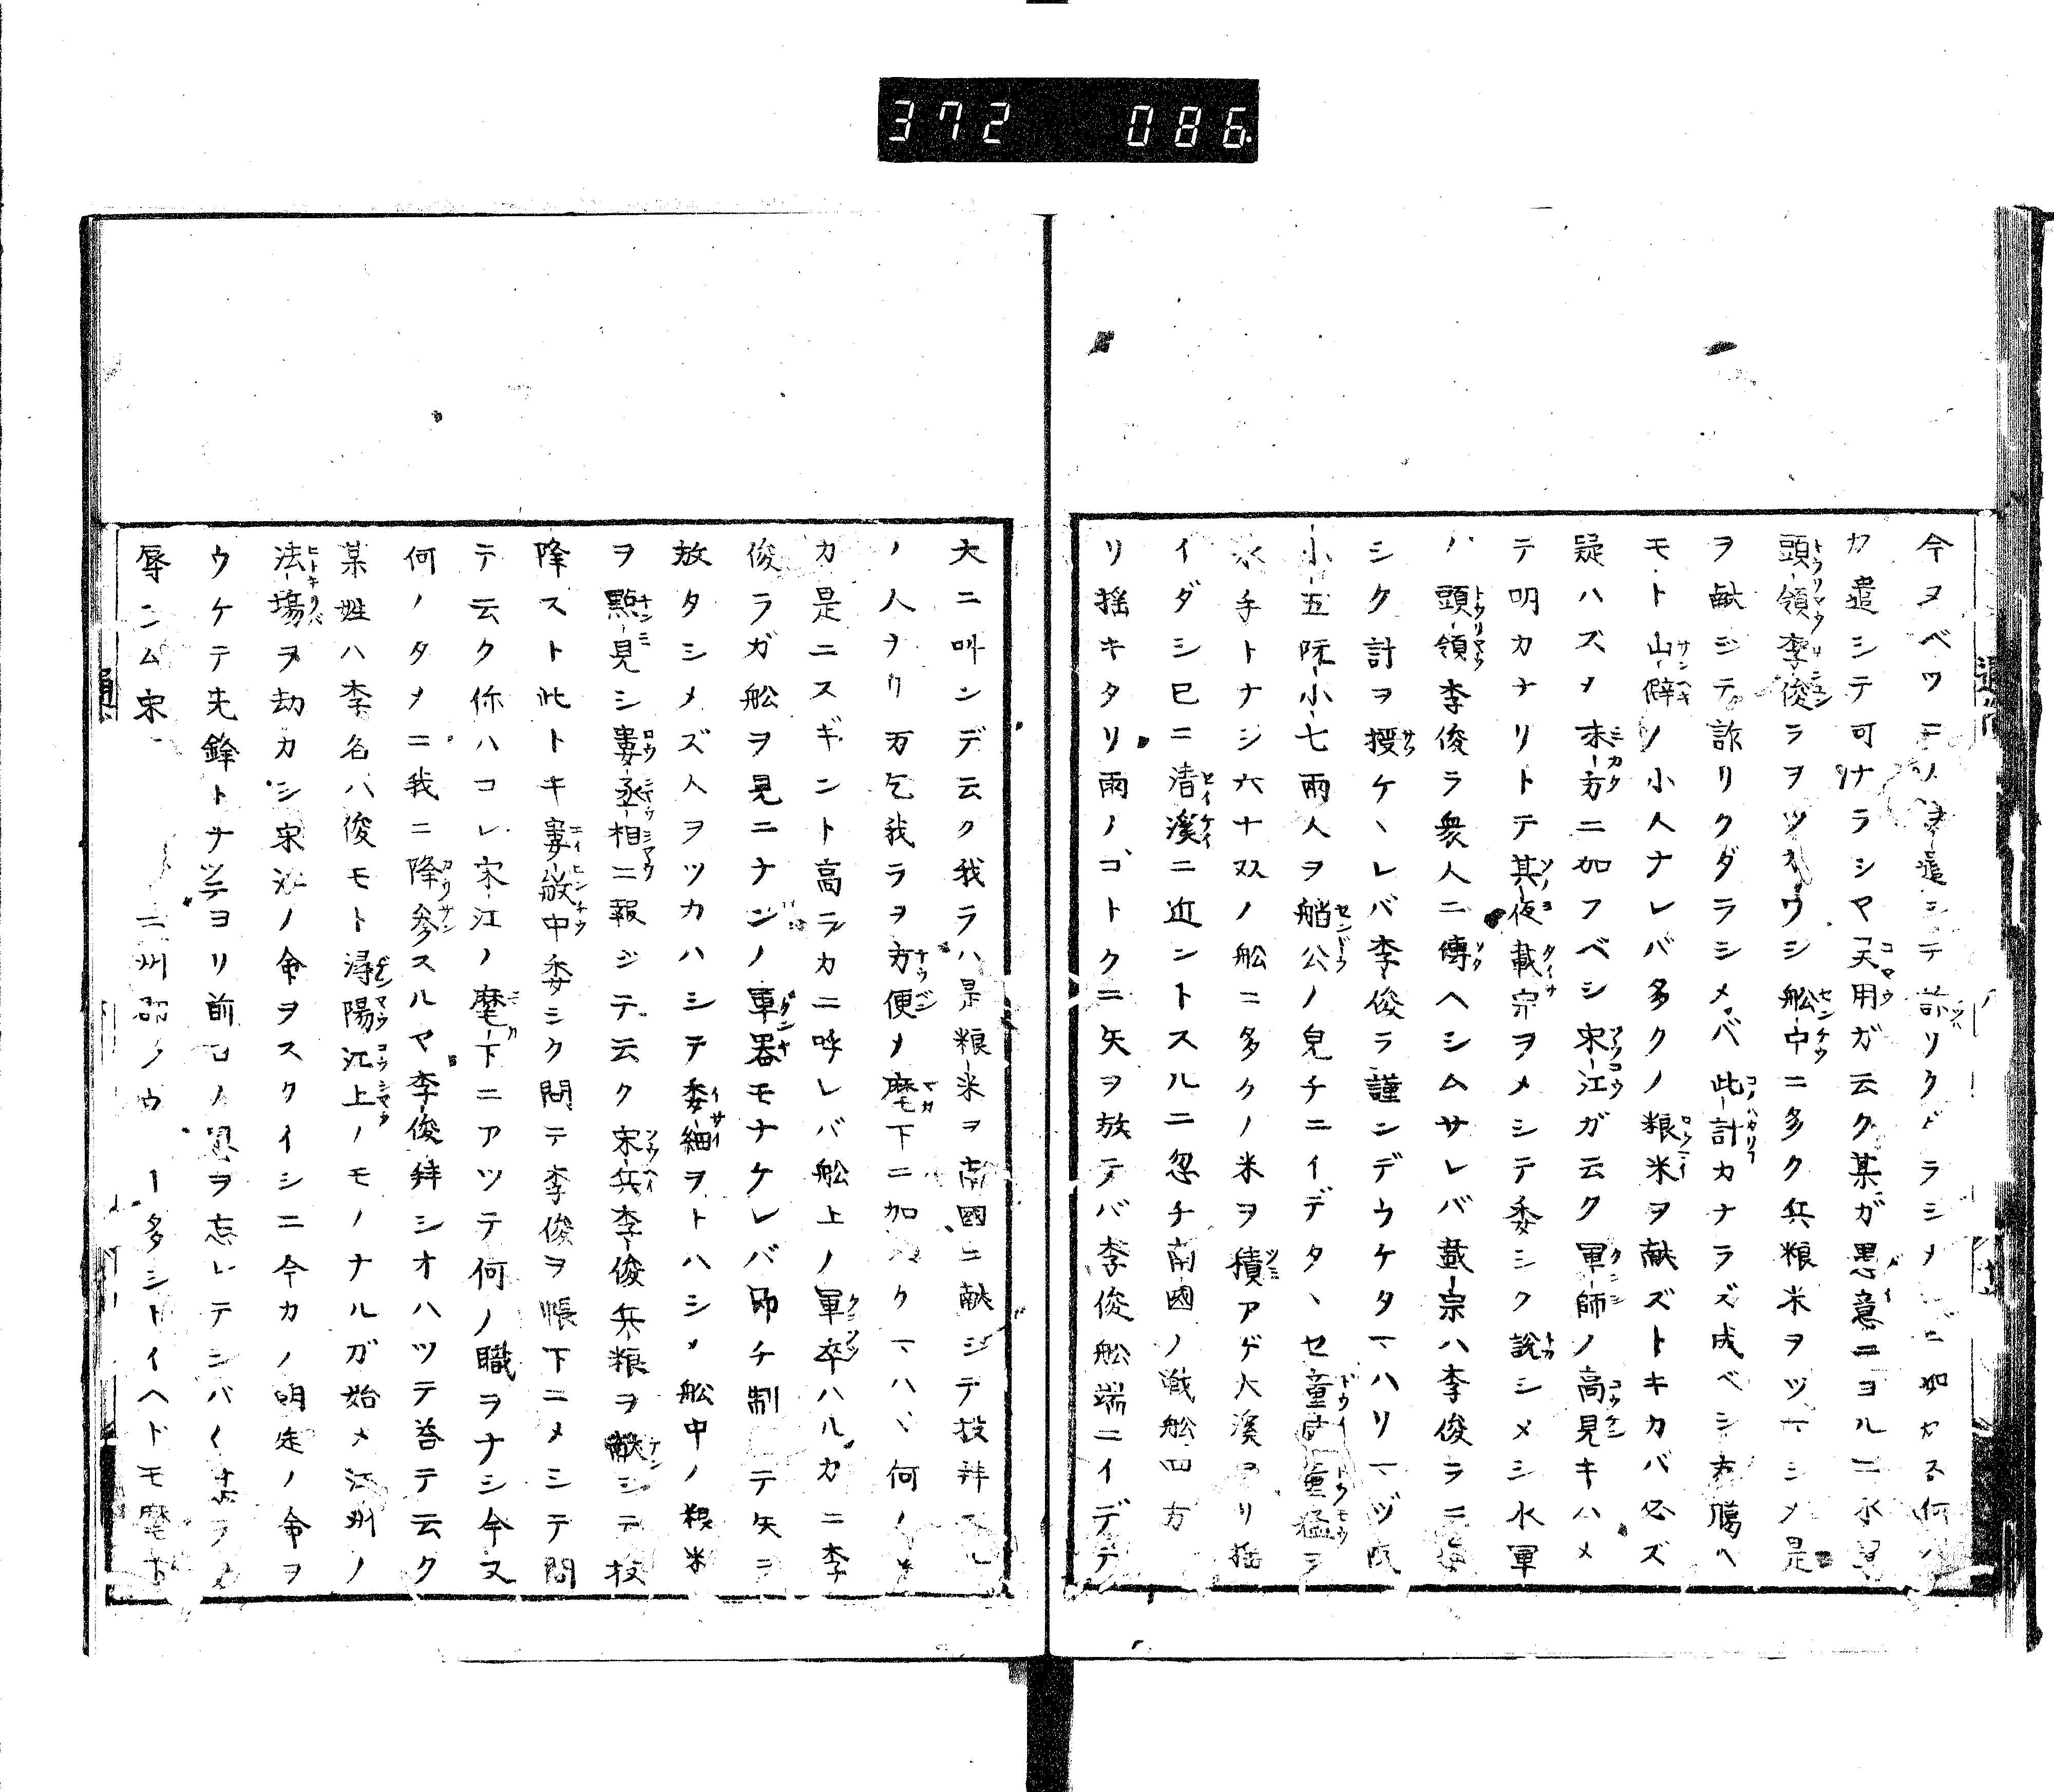 372 086
リクダラシメ
カ遣シテ可ナラシヤ 呉用ガ云ク某ガ愚意ニヨルニ水軍
頭領李俊ラヲツカワシ舩中ニ多ク兵粮米ヲツマシメ是
ヲ献ジテ詐リクダラシメバ此計カナラズ成ベシ方臘ヘ
モト山僻ノ小人ナレバ多クノ粮米ヲ献ズトキカバ必ズ
疑ハズメ味方ニ加フベシ宋江ガ云ク軍師ノ高見キハメ
テ明カナリトテ其夜戴宗ヲメシテ委シク説シメシ水軍
ノ頭領李俊ラ衆人ニ傳ヘシムサレバ戴宗ハ李俊ラニ
シク計ヲ授ケヽレバ李俊ラ謹ンデウケタマハリマヅ阮
小五阮小七両人ヲ舩公ノ皃チニイデタヽセ童威童猛ヲ
水手トナシ六十双ノ舩ニ多クノ米ヲ積アゲ大溪ヨリ揺
イダシ已ニ清溪ニ近ントスルニ忽チ南國ノ戦舩四方
リ揺キタリ雨ノゴトクニ矢ヲ放テバ李俊舩端ニイデテ
大ニ叫ンデ云ク我ラハ是粮米ヲ南國ニ献ジテ投拜スル
ノ人ナリ万乞我ラヲ方便メ麾下ニ加ハクマハヾ何ノ
カ是ニスギント高ラカニ呼レバ舩上ノ軍卒ハルカニ李
俊ラガ舩ヲ見ニナンノ軍器モナケレバ即チ制シテ矢ヲ
放タシメズ人ヲツカハシテ委細ヲトハシメ舩中ノ粮米
ヲ點見シ婁丞相ニ報ジテ云ク宋兵李俊兵粮ヲ献シテ投
降スト此トキ婁敏中委シク問テ李俊ヲ帳下ニメシテ問
テ云ク你ハコレ宋江ノ麾下ニアツテ何ノ職ヲナシ今又
何ノタメニ我ニ降参スルヤ李俊拜シオハツテ荅テ云ク
某姓ハ李名ハ俊モト潯陽江上ノモノナルガ始メ江州ノ
法塲ヲ劫カシ宋江ノ命ヲスクイシニ今カノ朝廷ノ命ヲ
ウケテ先鋒トナツテヨリ前日ノ恩ヲ忘レテシバく
辱シム宋
多シトイヘドモ麾下